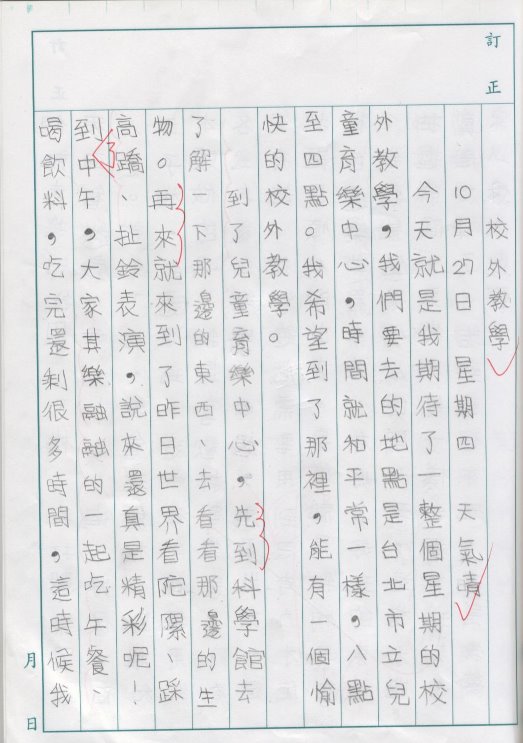 訂正
校外教學
10月27日 星期四 天氣晴
今天就是我期待了一整個星期的校
外教學，我們要去的地點是台北市立兒
童育樂中心，時間就和平常一樣，八點
至四點。我希望到了那裡，能有一個愉
快的校外教學。
到了兒童育樂中心，先到科學館去
了解一下那邊的東西、去看看那邊的生
物。再來就來到了昨日世界看陀騾、踩
高蹻、扯鈴表演，說來還真是精彩呢！
到中午，大家其樂融融的一起吃午餐、
了
喝飲料，吃完還剩很多時間，這時候我
月 日